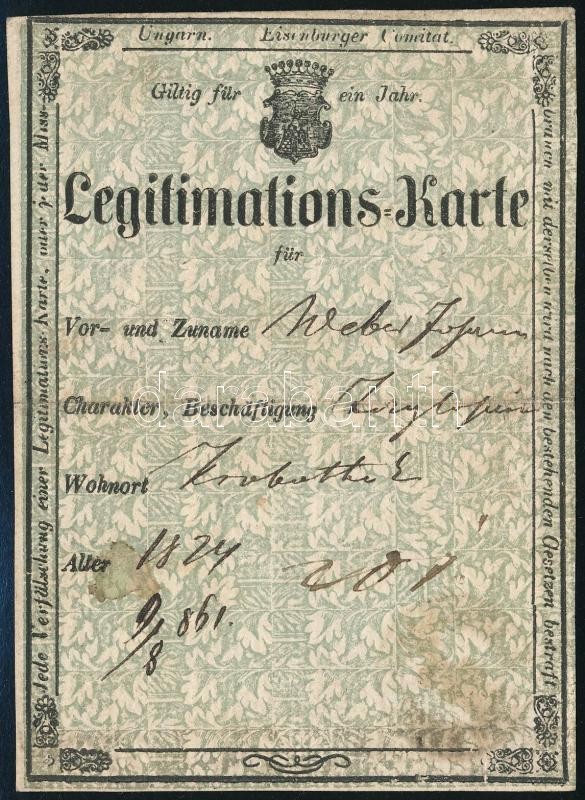 Ungarn. Eisenburger Comitat.
Giltig für ein Jahr.
Legitimations=Karte
für
Vor- und Zuname Weber Johann
Charakter, Beschäftigung
Wohnort
Alter 1824
9/8 861.
Jede Verfälschung einer Legitimations-Karte, oder jeder Miss-
brauch mit derselben wird nach den bestehenden Gesetzen bestraft
darabanth